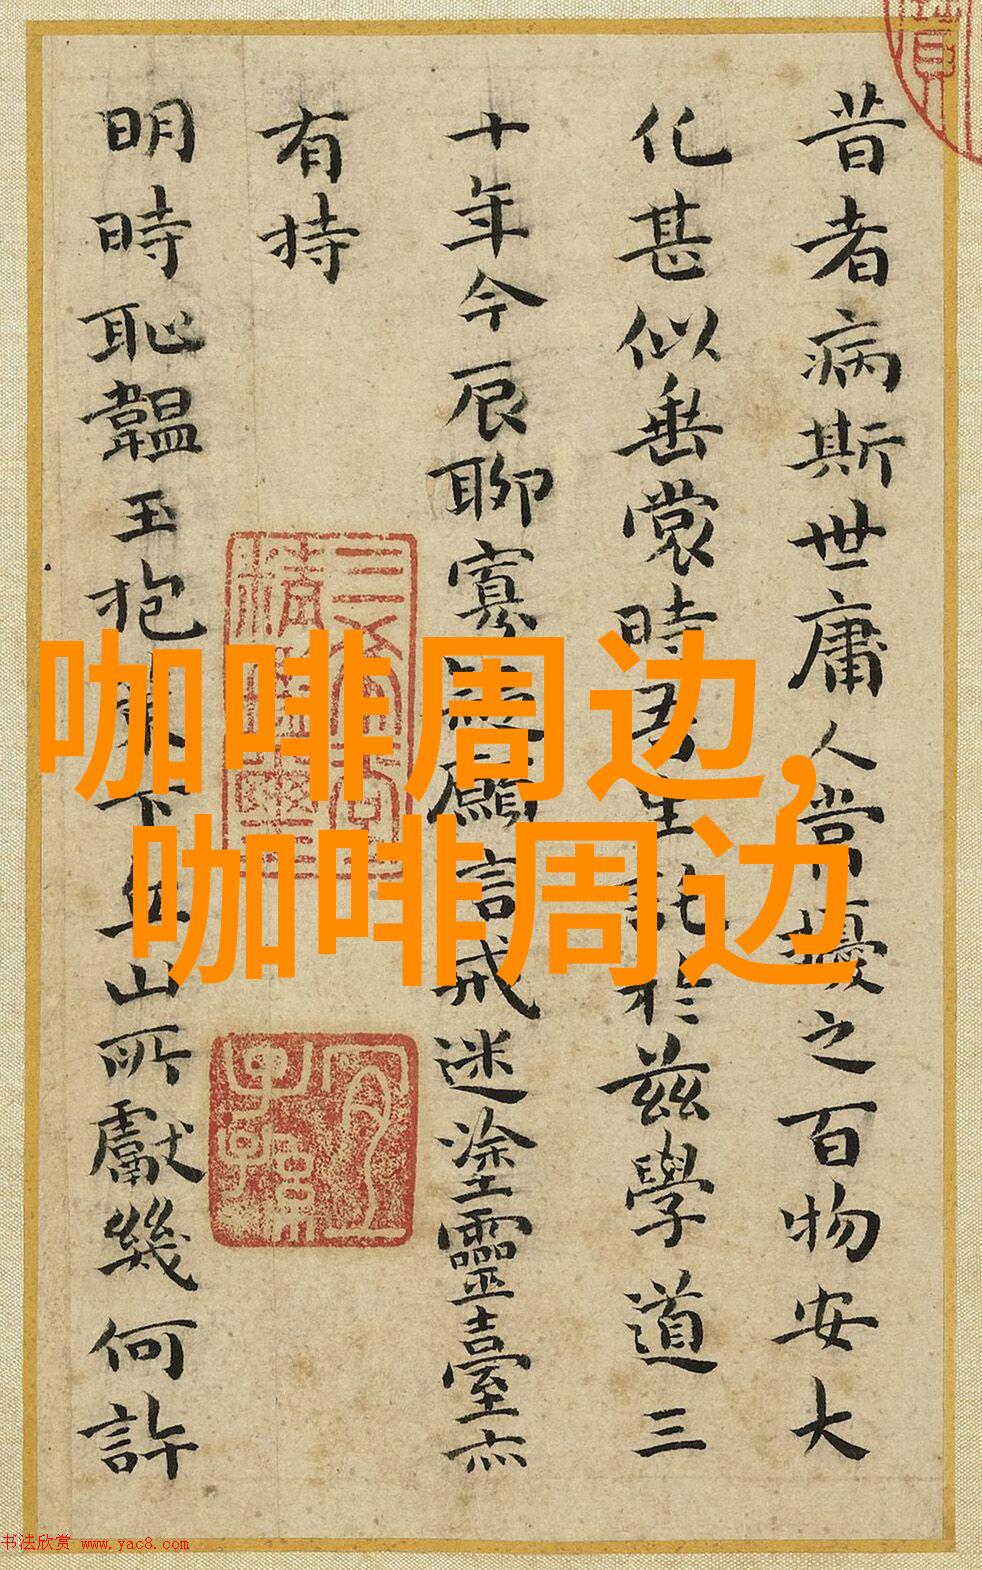 昔者病斯世庸人嘗擾之百物安大
化甚似垂裳時吾生託於茲學道三
十年今辰聊寡無願言戒迷塗靈臺亦
有持
明時恥韞玉抱下山所獻幾何許
咖啡周边,
咖啡周边
书法欣赏 www.yac8.com